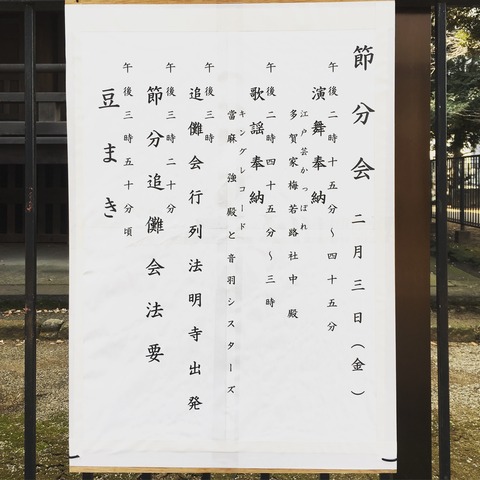 節分会 二月三日(金)
午後二時十五分～四十五分
演舞奉納
江戸芸かっぽれ
多賀家梅若路社中 殿
午後二時四十五分～三時
歌謡奉納
キングレコード
當麻 強 殿と音羽シスターズ
午後三時
追儺会行列法明寺出発
午後三時二十分
節分追儺会法要
午後三時五十分頃
豆まき